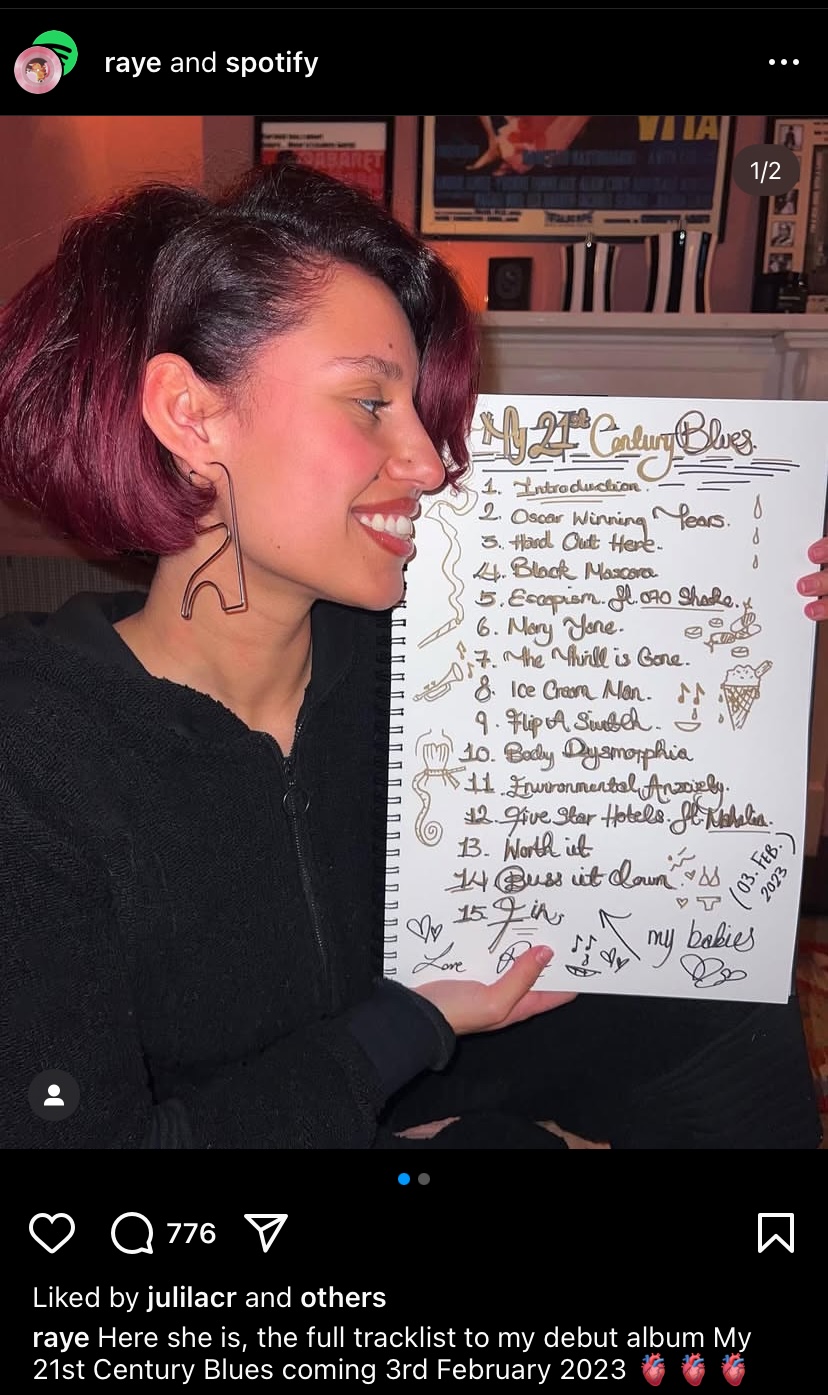 raye and spotify
1/2
CABARET
VITA
My 21st Century Blues.
1. Introduction.
2. Oscar Winning Tears.
3. Hard Out Here.
4. Black Mascara
5. Escapism. ft. 070 Shake.
6. Mary Jane.
7. The Thrill is Gone.
8. Ice Cream Man.
9. Flip A Switch.
10. Body Dysmorphia
11. Environmental Anxiety.
12. Five Star Hotels. ft. Mahalia.
13. Worth it
14 Buss it down.
(03. FEB. 2023)
15. Fin.
my babies
Love
776
Liked by julilacr and others
raye Here she is, the full tracklist to my debut album My
21st Century Blues coming 3rd February 2023 🫀 🫀 🫀